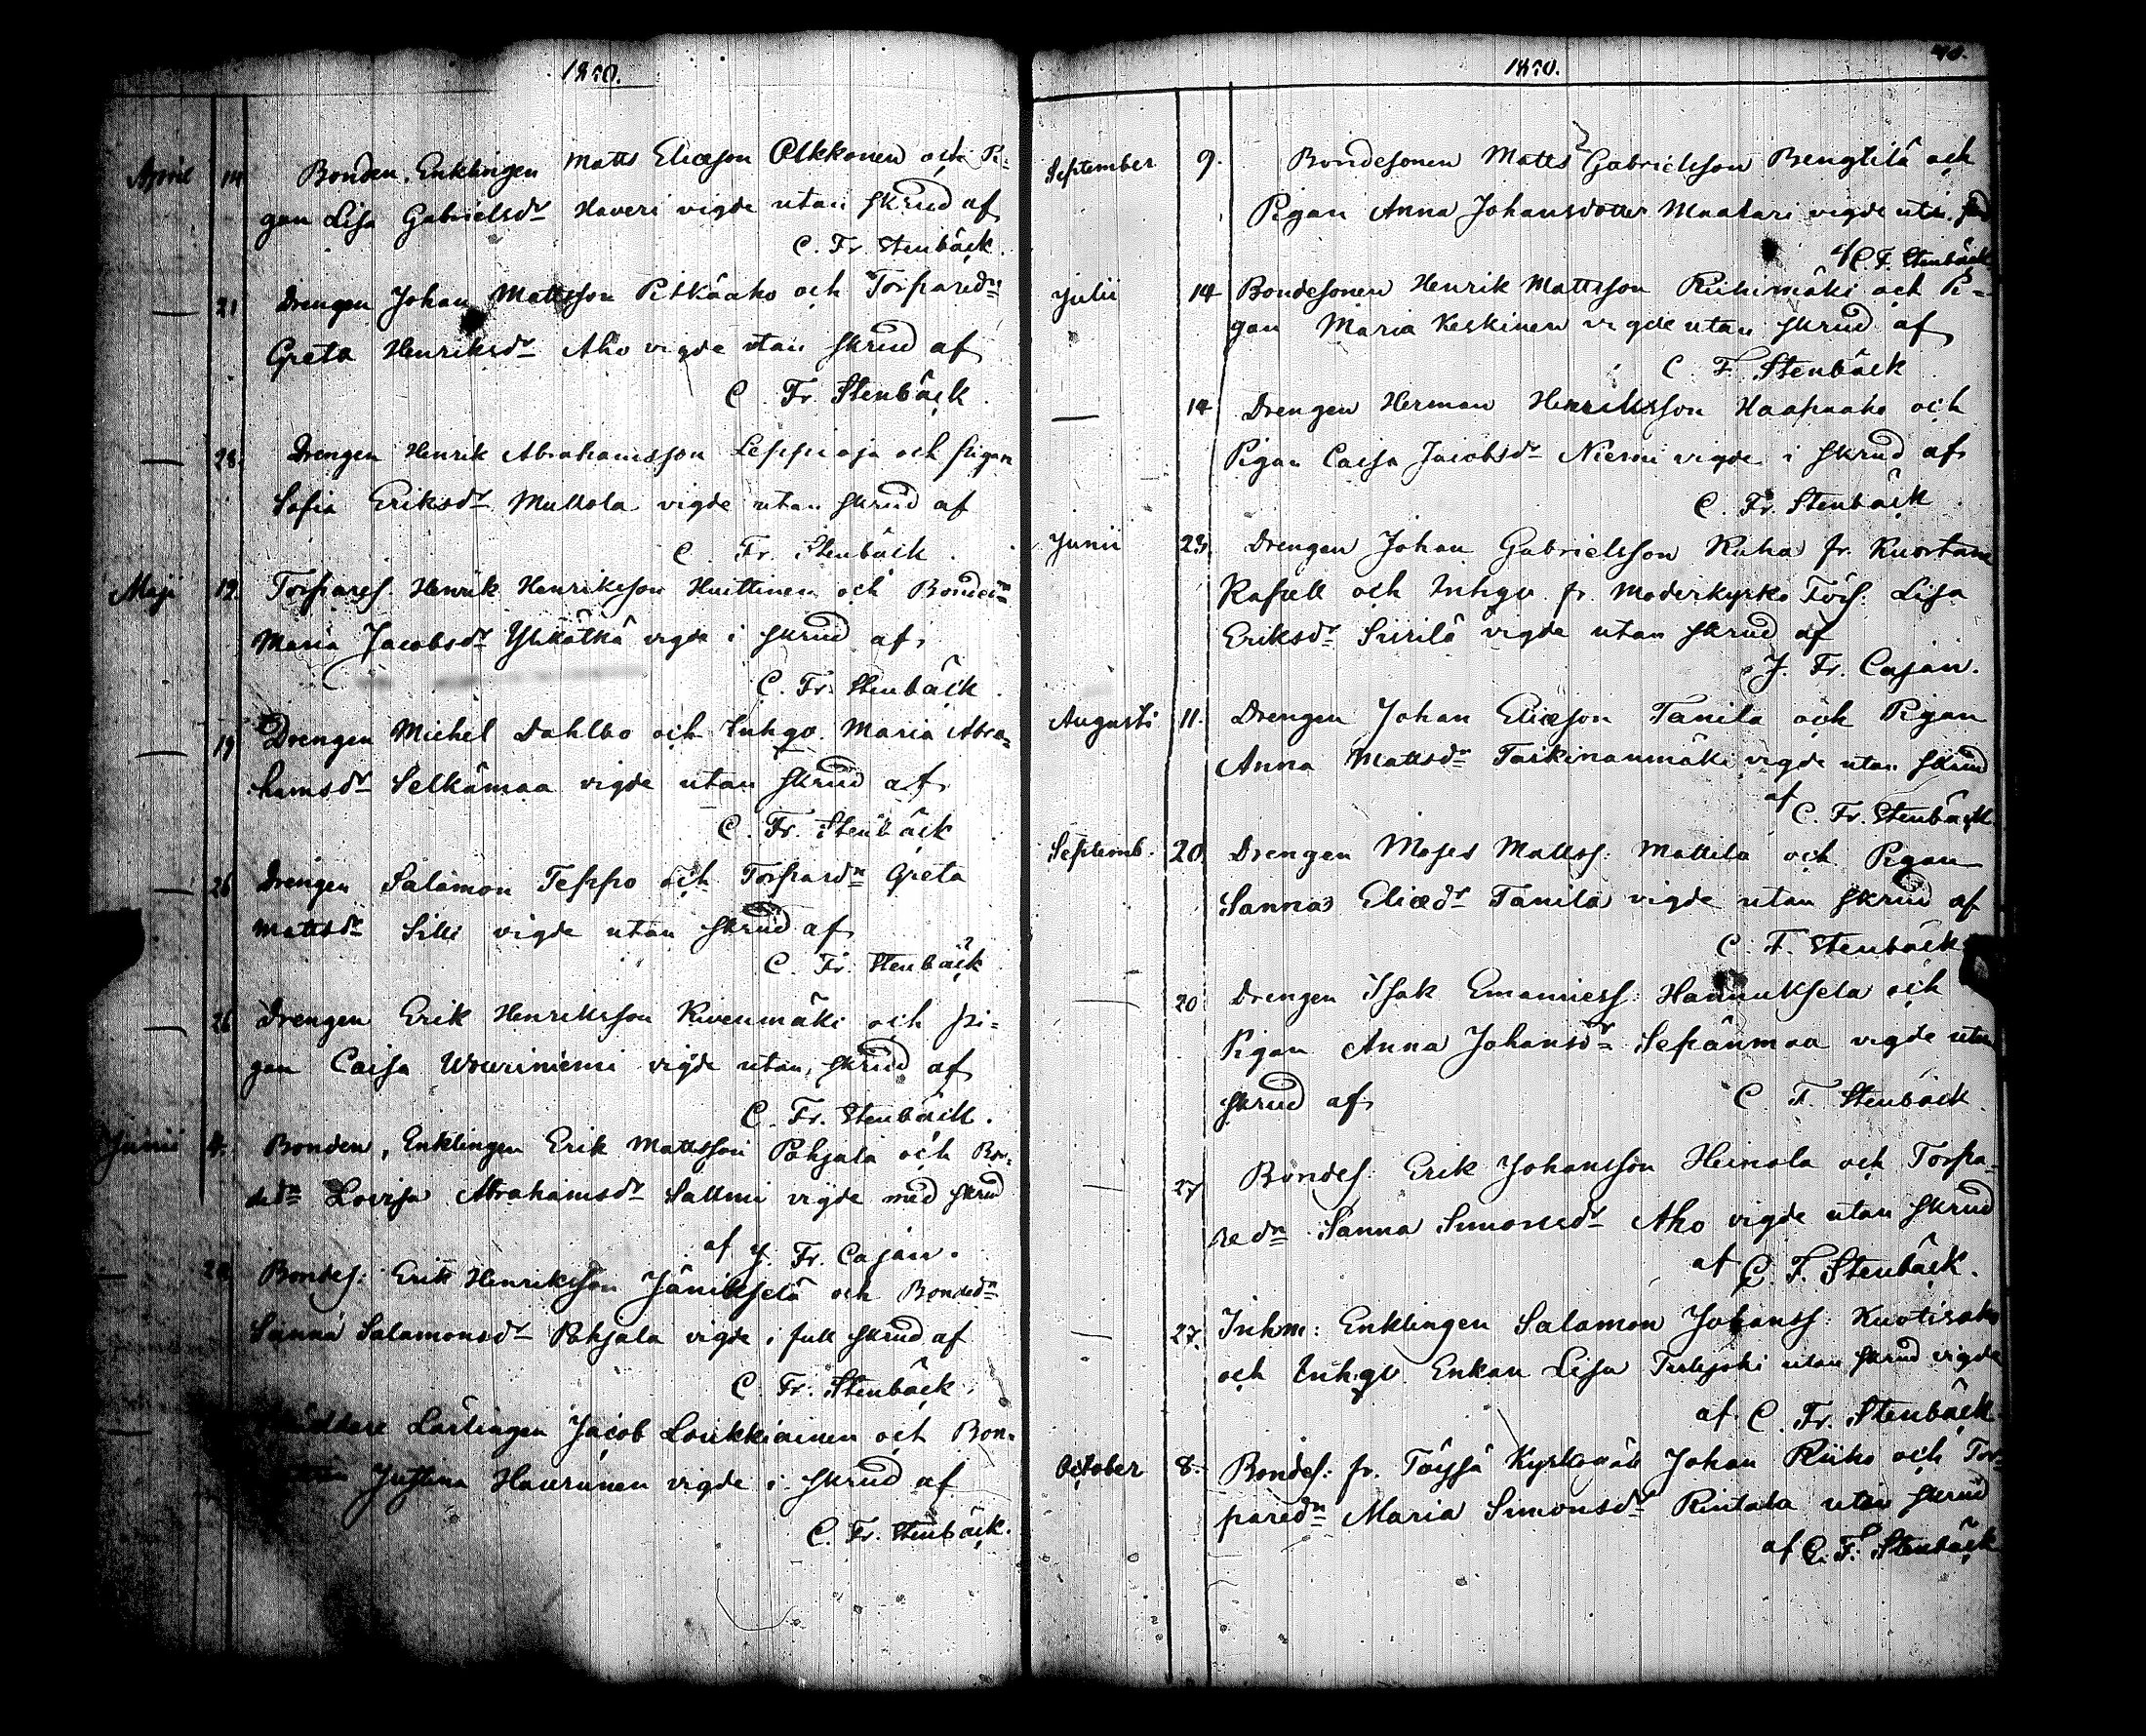 1850.
April 14 Bonden, Enklingen Matts Eliæson Olkkonen och Pi-
gan Lisa Gabrielsdr Haveri vigde utan skrud af
C. Fr. Stenbäck.
— 21 Drengen Johan Mattsson Pitkäaho och Torparedn
Greta Henriksdr Aho vigde utan skrud af
C. Fr. Stenbäck.
— 28. Drengen Henrik Abrahamsson Leppioja och pigan
Sofia Eriksdr Mullola vigde utan skrud af
C. Fr. Stenbäck.
Maji 19. Torpares. Henrik Henriksson Huttinen och Bonden
Maria Jacobsdr Ylikätkä vigde i skrud af
C. Fr. Stenbäck.
— 19 Drengen Michel Dahlbo och Inhgv. Maria Abra-
hamsdr Selkämaa vigde utan skrud af
C. Fr. Stenbäck
— 26 Drengen Salamon Teppo och Torparedn Greta
Mattsdr Silli vigde utan skrud af
C. Fr. Stenbäck
— 26 Drengen Erik Henriksson Kivenmäki och pi-
gan Caisa Wuoriniemi vigde utan skrud af
C. Fr. Stenbäck.
Junii 4. Bonden, Enklingen Erik Mattsson Pohjala och Bon-
dedn Lovisa Abrahamsdr Sallmi vigde med skrud
af J. Fr. Cajan.
— Bondes: Erik Henriksson Jänikselä och Bondedn
Sanna Salamonsdr Pohjala vigde i full skrud af
C. Fr. Stenbäck.
— Lärlingen Jacob Loukkiainen och Bon-
Justina Haurunen vigde i skrud af
C. Fr. Stenbäck.
40.
1850.
September 9. Bondesonen Matts Gabrielsson Bengtilä och
Pigan Anna Johansdotter Maatari vigde utan
af C. F. Stenbäck
Julii 14 Bondesonen Henrik Mattsson Riihimäki och Pi-
gan Maria Keskinen vigde utan skrud af
C. F. Stenbäck
— 14 Drengen Herman Henriksson Haapaaho och
Pigan Caisa Jacobsdr Niemi vigde i skrud af
C. Fr. Stenbäck.
Junii 23. Drengen Johan Gabrielsson Ruha fr. Kuortane
Kapell och Inhgv. fr. Moderkyrko Förs. Lisa
Eriksdr Siirilä vigde utan skrud af
J. Fr. Cajan.
Augusti 11. Drengen Johan Eliæson Tanila och Pigan
Anna Mattsdr Taikinanmäki vigde utan skrud
af C. Fr. Stenbäck.
Septemb. 20. Drengen Moses Matts: Mattila och Pigan
Sanna Eliædr Tanila vigde utan skrud af
C. F. Stenbäck
— 20 Drengen Isak Hannuksela och
Pigan Anna Johansdr Sepänmaa vigde utan
skrud af C. F. Stenbäck.
— 27 Bondes: Erik Johansson Heinola och Torpa-
redn Sanna Simonsdr Aho vigde utan skrud
af C. F. Stenbäck.
— 27. Inhm: Enklingen Salamon Johanss: Kuotisaho
och Inhgv. Enkan Lisa utan skrud vigde
af C. Fr. Stenbäck
October 8. Bondes: fr. Töysä Johan Riiho och Tor-
paredn Maria Simonsdr Rintala utan skrud
af C. F. Stenbäck